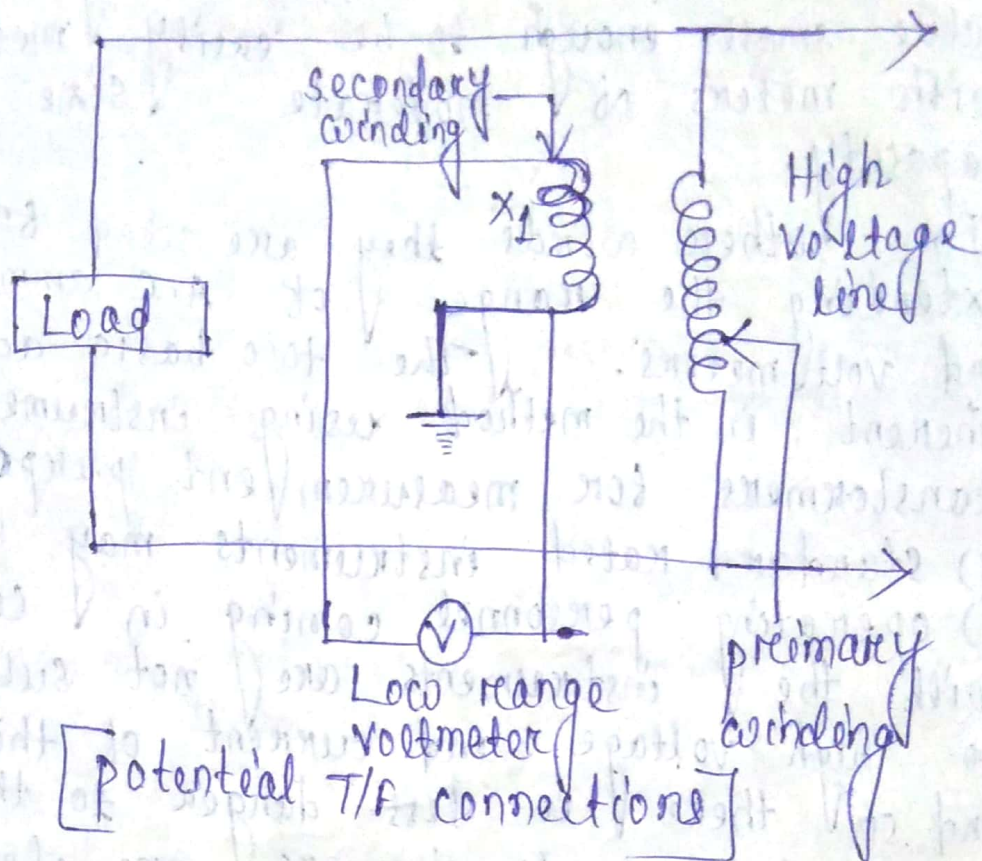 secondary
winding
X1
High
voltage
line
Load
V
Low range
voltmeter
primary
winding
potential T/F connections